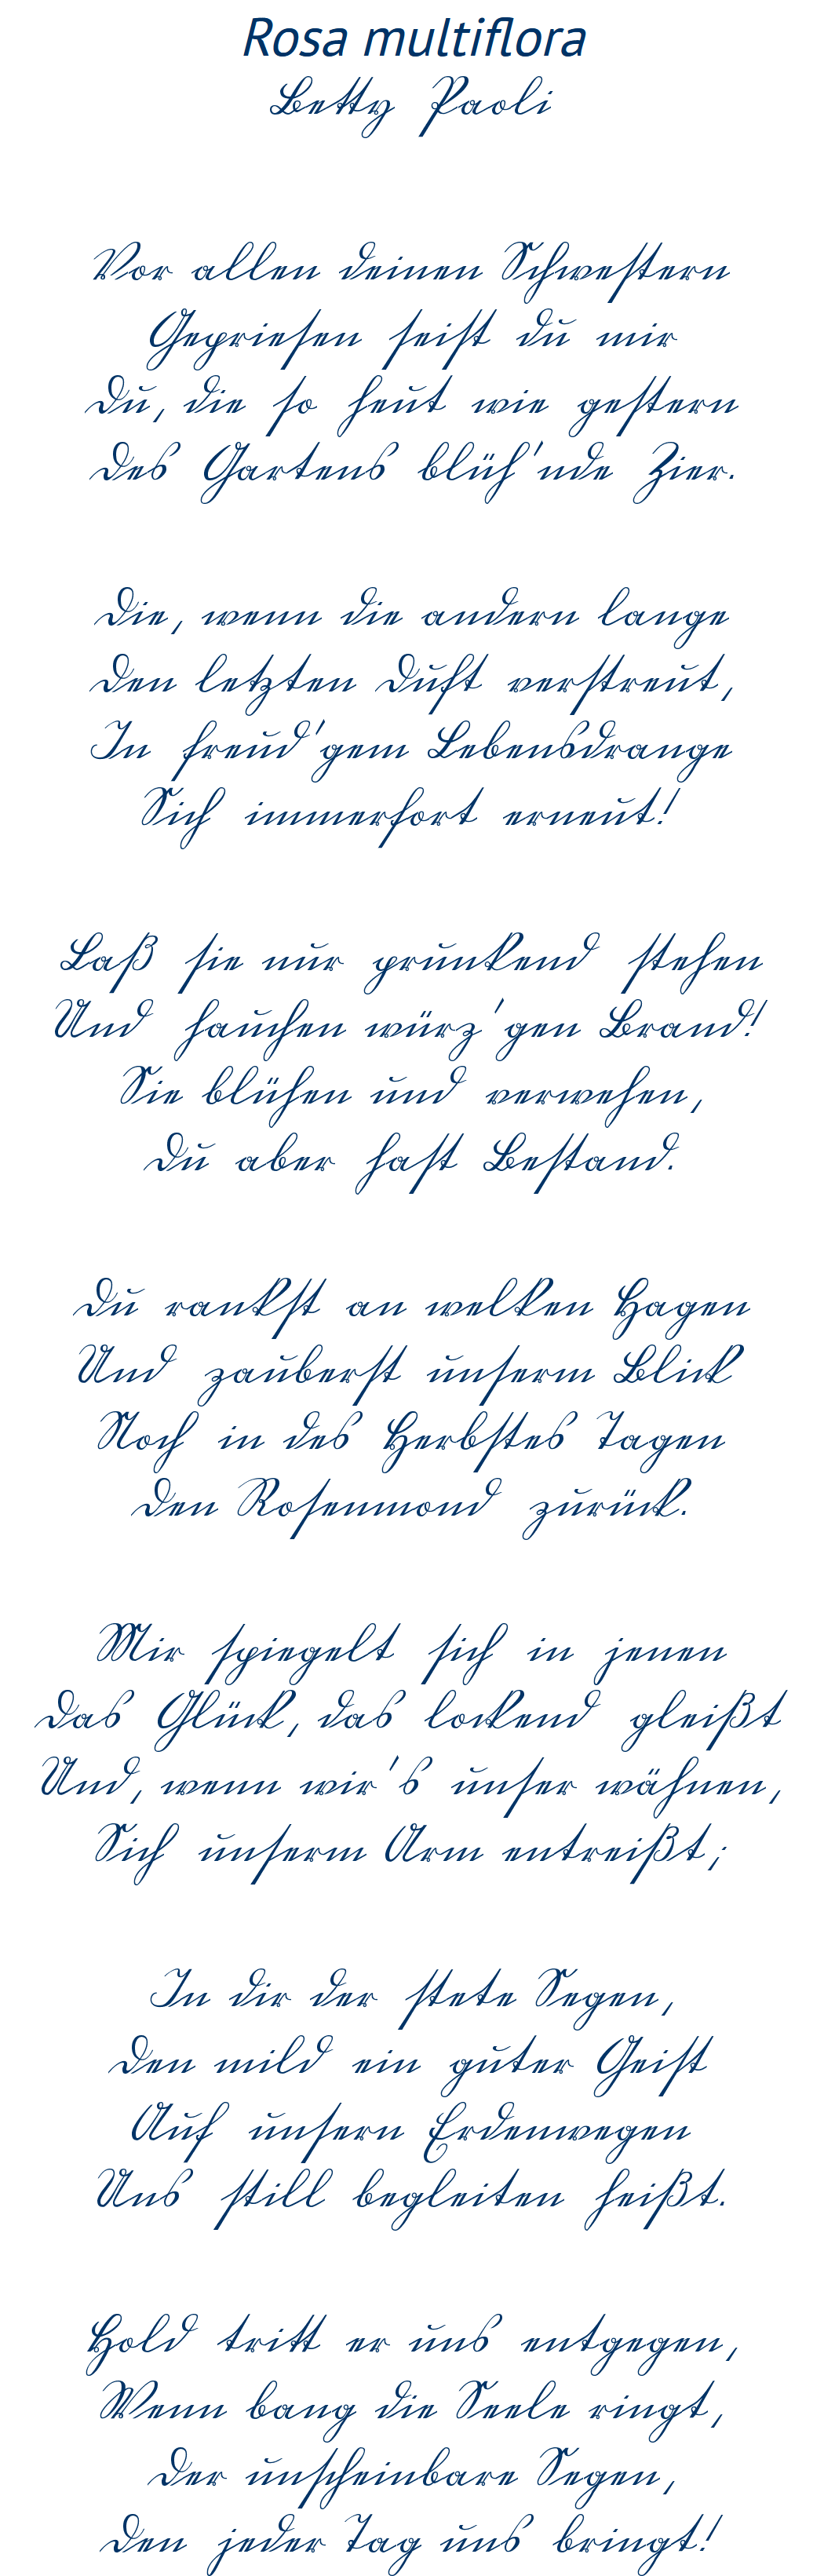 Rosa multiflora
Betty Paoli
Vor allen deinen Schwestern
Gepriesen seist du mir
Du, die so heut wie gestern
Des Gartens blüh'nde Zier.
Die, wenn die andern lange
Den letzten Duft verstreut,
In freud'gem Lebensdrange
Sich immerfort erneut!
Laß sie nur prunkend stehen
Und hauchen würz'gen Brand!
Sie blühen und verwehen,
Du aber hast Bestand.
Du rankst an welken Hagen
Und zauberst unserm Blick
Noch in des Herbstes Tagen
Den Rosenmond zurück.
Mir spiegelt sich in jenen
Das Glück, das lockend gleißt
Und, wenn wir's unser wähnen,
Sich unserm Arm entreißt;
In dir der stete Segen,
Den mild ein guter Geist
Auf unsern Erdenwegen
Uns still begleiten heißt.
Hold tritt er uns entgegen,
Wenn bang die Seele ringt,
Der unscheinbare Segen,
Den jeder Tag uns bringt!